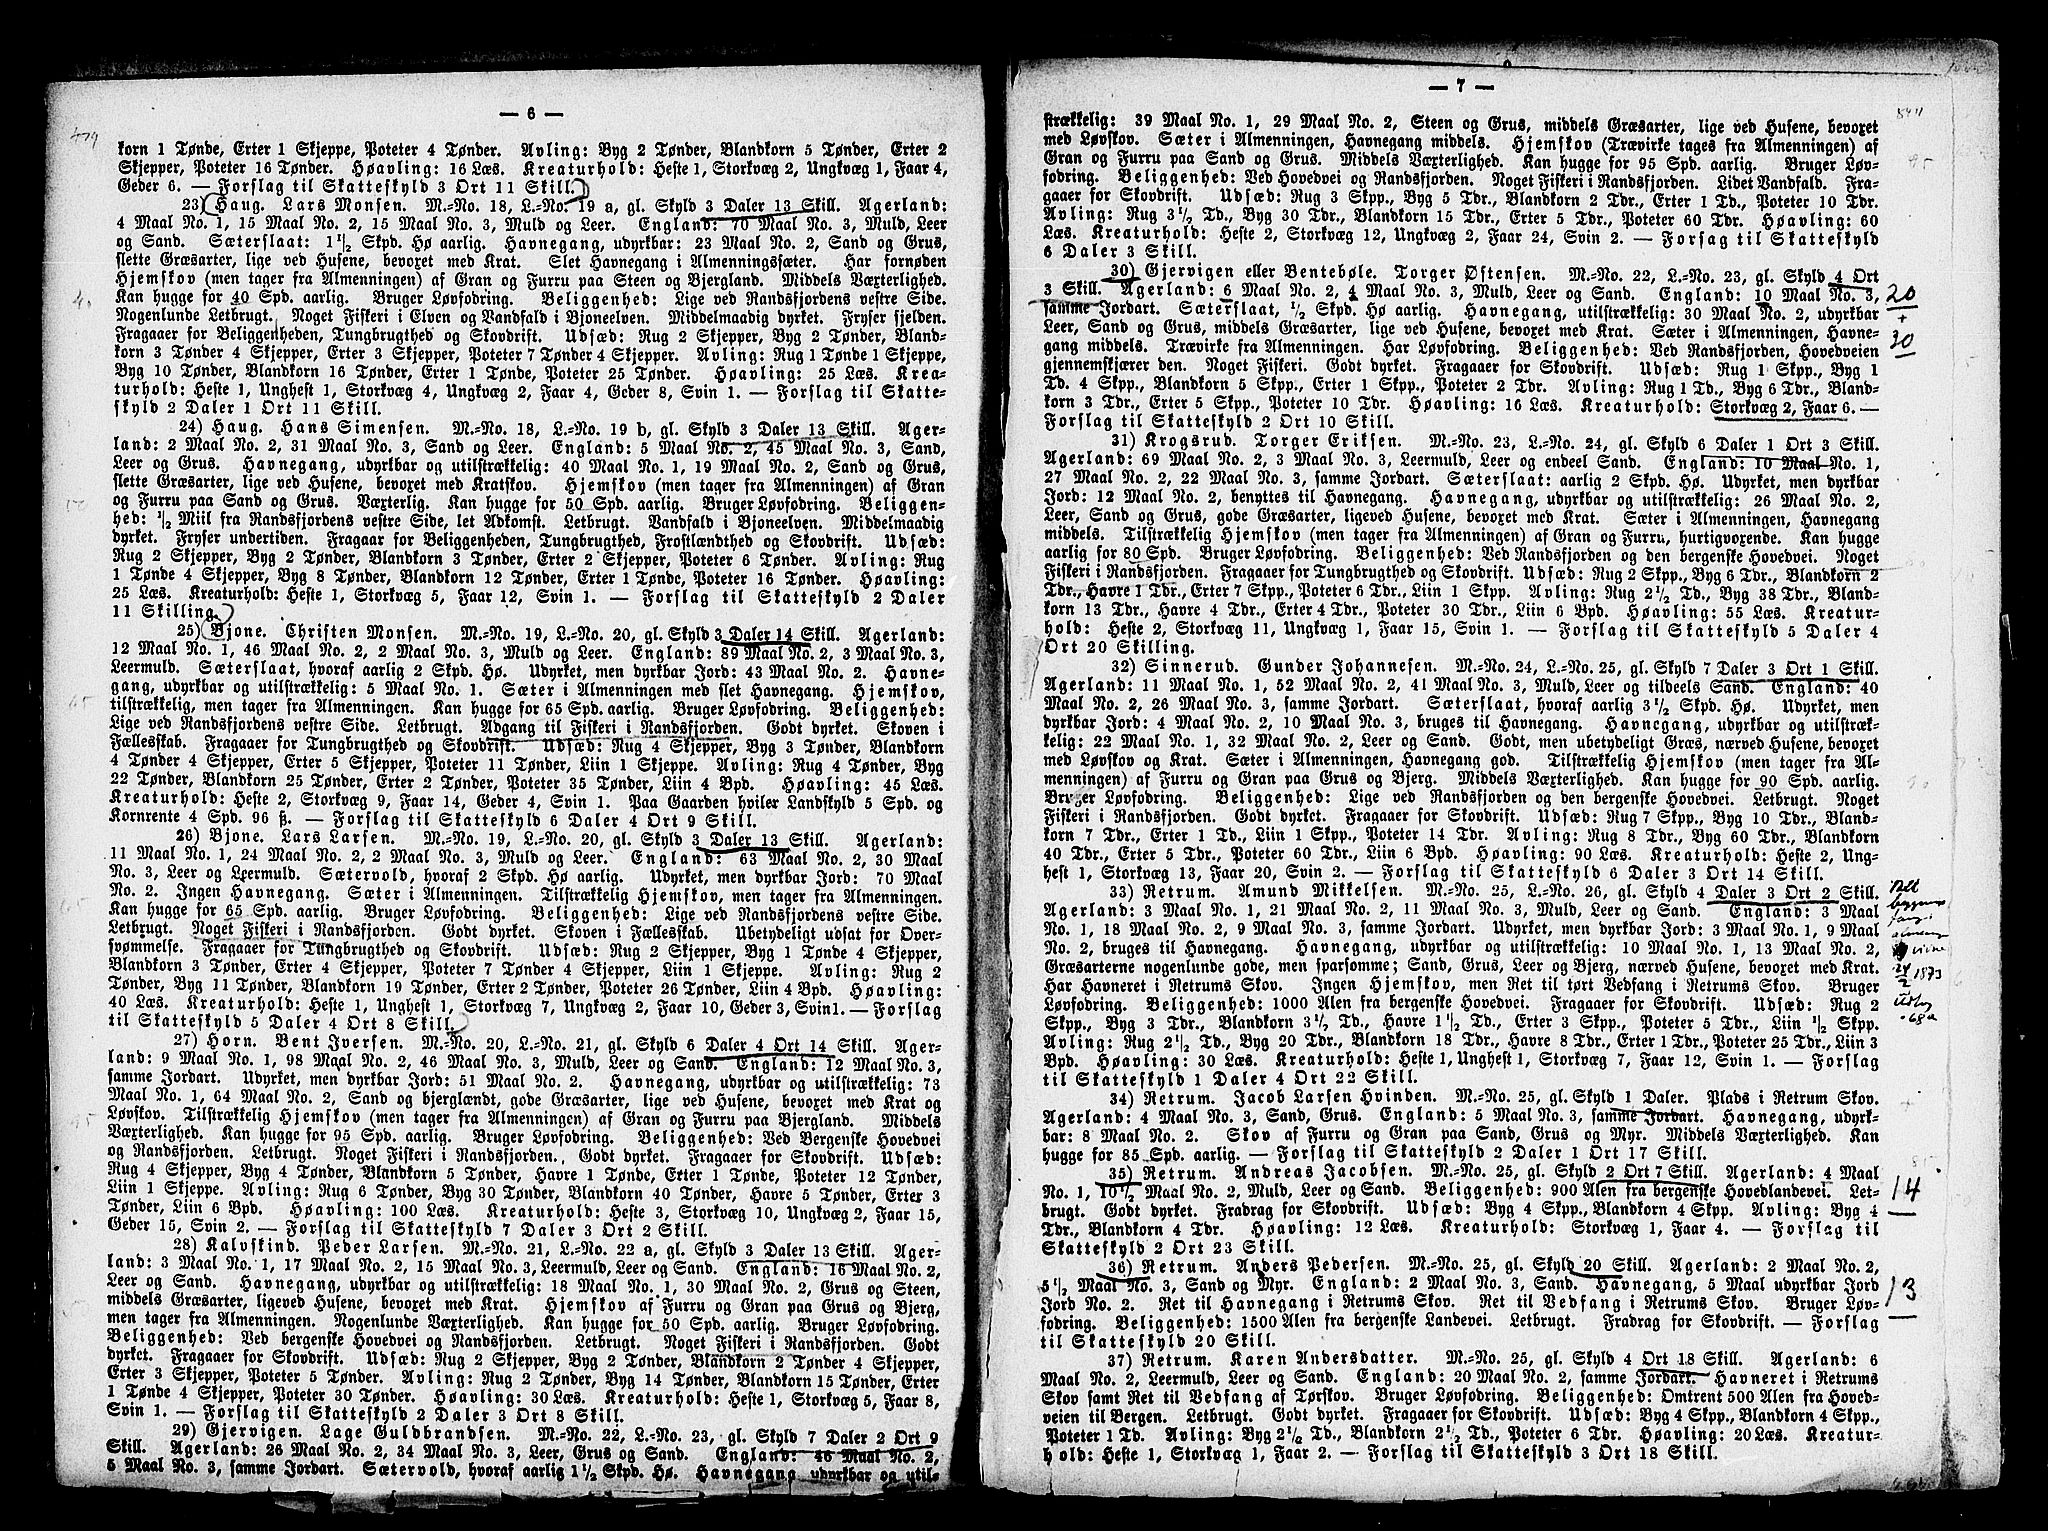 — 6 —
korn 1 Tønde, Erter 1 Skjeppe, Poteter 4 Tønder. Avling: Byg 2 Tønder, Blandkorn 5 Tønder, Erter 2
Skjepper, Poteter 16 Tønder. Høavling: 16 Læs. Kreaturhold: Heste 1, Storkvæg 2, Ungkvæg 1, Faar 4,
Geder 6. — Forslag til Skatteskyld 3 Ort 11 Skill.
23) Haug. Lars Monsen. M.=No. 18, L.=No. 19 a, gl. Skyld 3 Daler 13 Skill. Agerland:
4 Maal No. 1, 15 Maal No. 2, 15 Maal No. 3, Muld og Leer. England: 70 Maal No. 3, Muld, Leer
og Sand. Sæterslaat: 1 1/2 Skpd. Hø aarlig. Havnegang, udyrkbar: 23 Maal No. 2, Sand og Grus,
slette Græsarter, lige ved Husene, bevoxet med Krat. Slet Havnegang i Almenningssæter. Har fornøden
Hjemskov (men tager fra Almenningen) af Gran og Furru paa Steen og Bjergland. Middels Væxterlighed.
Kan hugge for 40 Spd. aarlig. Bruger Løvfodring. Beliggenhed: Lige ved Randsfjordens vestre Side.
Nogenlunde Letbrugt. Noget Fiskeri i Elven og Vandfald i Bjoneelven. Middelmaadig dyrket. Fryser sjelden.
Fragaaer for Beliggenheden, Tungbrugthed og Skovdrift. Udsæd: Rug 2 Skjepper, Byg 2 Tønder, Bland-
korn 3 Tønder 4 Skjepper, Erter 3 Skjepper, Poteter 7 Tønder 4 Skjepper. Avling: Rug 1 Tønde 1 Skjeppe,
Byg 10 Tønder, Blandkorn 16 Tønder, Erter 1 Tønde, Poteter 25 Tønder. Høavling: 25 Læs. Krea-
turhold: Heste 1, Unghest 1, Storkvæg 4, Ungkvæg 2, Faar 4, Geder 8, Svin 1. — Forslag til Skatte-
skyld 2 Daler 1 Ort 11 Skill.
24) Haug. Hans Simensen. M.=No. 18, L.=No. 19 b, gl. Skyld 3 Daler 13 Skill. Ager-
land: 2 Maal No. 2, 31 Maal No. 3, Sand og Leer. England: 5 Maal No. 2, 45 Maal No. 3, Sand,
Leer og Grus. Havnegang, udyrkbar og utilstrækkelig: 40 Maal No. 1, 19 Maal No. 2, Sand og Grus,
slette Græsarter, lige ved Husene, bevoxet med Kratskov. Hjemskov (men tager fra Almenningen) af Gran
og Furru paa Sand og Grus. Væxterlig. Kan hugge for 50 Spd. aarlig. Bruger Løvfodring. Beliggen-
hed: 1/2 Miil fra Randsfjordens vestre Side, let Adkomst. Letbrugt. Vandfald i Bjoneelven. Middelmaadig
dyrket. Fryser undertiden. Fragaar for Beliggenheden, Tungbrugthed, Frostlændthed og Skovdrift. Udsæd:
Rug 2 Skjepper, Byg 2 Tønder, Blandkorn 3 Tønder, Erter 2 Skjepper, Poteter 6 Tønder. Avling: Rug
1 Tønde 4 Skjepper, Byg 8 Tønder, Blandkorn 12 Tønder, Erter 1 Tønde, Poteter 16 Tønder. Høavling:
25 Læs. Kreaturhold: Heste 1, Storkvæg 5, Faar 12, Svin 1. — Forslag til Skatteskyld 2 Daler
11 Skilling.
25) Bjone. Christen Monsen. M.=No. 19, L.=No. 20, gl. Skyld 3 Daler 14 Skill. Agerland:
12 Maal No. 1, 46 Maal No. 2, 2 Maal No. 3, Muld og Leer. England: 89 Maal No. 2, 3 Maal No. 3,
Leermuld. Sæterslaat, hvoraf aarlig 2 Skpd. Hø. Udyrket, men dyrkbar Jord: 43 Maal No. 2. Havne-
gang, udyrkbar og utilstrækkelig: 5 Maal No. 1. Sæter i Almenningen med slet Havnegang. Hjemskov,
tilstrækkelig, men tager fra Almenningen. Kan hugge for 65 Spd. aarlig. Bruger Løvfodring. Beliggenhed:
Lige ved Randsfjordens vestre Side. Letbrugt. Adgang til Fiskeri i Randsfjorden. Godt dyrket. Skoven i
Fællesskab. Fragaaer for Tungbrugthed og Skovdrift. Udsæd: Rug 4 Skjepper, Byg 3 Tønder, Blandkorn
4 Tønder 4 Skjepper, Erter 5 Skjepper, Poteter 11 Tønder, Liin 1 Skjeppe. Avling: Rug 4 Tønder, Byg
22 Tønder, Blandkorn 25 Tønder, Erter 2 Tønder, Poteter 35 Tønder, Liin 4 Bpd. Høavling: 45 Læs.
Kreaturhold: Heste 2, Storkvæg 9, Faar 14, Geder 4, Svin 1. Paa Gaarden hviler Landskyld 5 Spd. og
Kornrente 4 Spd. 96 ß. — Forslag til Skatteskyld 6 Daler 4 Ort 9 Skill.
26) Bjone. Lars Larsen. M.=No. 19, L.=No. 20, gl. Skyld 3 Daler 13 Skill. Agerland:
11 Maal No. 1, 24 Maal No. 2, 2 Maal No. 3, Muld og Leer. England: 63 Maal No. 2, 30 Maal
No. 3, Leer og Leermuld. Sætervold, hvoraf 2 Skpd. Hø aarlig. Udyrket, men dyrkbar Jord: 70 Maal
No. 2. Ingen Havnegang. Sæter i Almenningen. Tilstrækkelig Hjemskov, men tager fra Almenningen.
Kan hugge for 65 Spd. aarlig. Bruger Løvfodring. Beliggenhed: Lige ved Randsfjordens vestre Side.
Letbrugt. Noget Fiskeri i Randsfjorden. Godt dyrket. Skoven i Fællesskab. Ubetydeligt udsat for Over-
svømmelse. Fragaaer for Tungbrugthed og Skovdrift. Udsæd: Rug 2 Skjepper, Byg 1 Tønde 4 Skjepper,
Blandkorn 3 Tønder, Erter 4 Skjepper, Poteter 7 Tønder 4 Skjepper, Liin 1 Skjeppe. Avling: Rug 2
Tønder, Byg 11 Tønder, Blandkorn 19 Tønder, Erter 2 Tønder, Poteter 26 Tønder, Liin 4 Bpd. Høavling:
40 Læs. Kreaturhold: Heste 1, Unghest 1, Storkvæg 7, Ungkvæg 2, Faar 10, Geder 3, Svin 1. — Forslag
til Skatteskyld 5 Daler 4 Ort 8 Skill.
27) Horn. Bent Iversen. M.=No. 20, L.=No. 21, gl. Skyld 6 Daler 4 Ort 14 Skill. Ager-
land: 9 Maal No. 1, 98 Maal No. 2, 46 Maal No. 3, Muld, Leer og Sand. England: 12 Maal No. 3,
samme Jordart. Udyrket, men dyrkbar Jord: 51 Maal No. 2. Havnegang, udyrkbar og utilstrækkelig: 73
Maal No. 1, 64 Maal No. 2, Sand og bjerglændt, gode Græsarter, lige ved Husene, bevoxet med Krat og
Løvskov. Tilstrækkelig Hjemskov (men tager fra Almenningen) af Gran og Furru paa Bjergland. Middels
Væxterlighed. Kan hugge for 95 Spd. aarlig. Bruger Løvfodring. Beliggenhed: Ved Bergenske Hovedvei
og Randsfjorden. Letbrugt. Noget Fiskeri i Randsfjorden. Godt dyrket. Fragaaer for Skovdrift. Udsæd:
Rug 4 Skjepper, Byg 4 Tønder, Blandkorn 5 Tønder, Havre 1 Tønde, Erter 1 Tønde, Poteter 12 Tønder,
Liin 1 Skjeppe. Avling: Rug 6 Tønder, Byg 30 Tønder, Blandkorn 40 Tønder, Havre 5 Tønder, Erter 3
Tønder, Liin 6 Bpd. Høavling: 100 Læs. Kreaturhold: Heste 3, Storkvæg 10, Ungkvæg 2, Faar 15,
Geder 15, Svin 2. — Forslag til Skatteskyld 7 Daler 3 Ort 2 Skill.
28) Kalvskind. Peder Larsen. M.=No. 21, L.=No. 22 a, gl. Skyld 3 Daler 13 Skill. Ager-
land: 3 Maal No. 1, 17 Maal No. 2, 15 Maal No. 3, Leermuld, Leer og Sand. England: 16 Maal No. 2,
Leer og Sand. Havnegang, udyrkbar og utilstrækkelig: 18 Maal No. 1, 30 Maal No. 2, Grus og Steen,
middels Græsarter, ligeved Husene, bevoxet med Krat. Hjemskov af Furru og Gran paa Grus og Bjerg,
men tager fra Almenningen. Nogenlunde Væxterlighed. Kan hugge for 50 Spd. aarlig. Bruger Løvfodring.
Beliggenhed: Ved bergenske Hovedvei og Randsfjorden. Letbrugt. Noget Fiskeri i Randsfjorden. Godt
dyrket. Fragaaer for Skovdrift. Udsæd: Rug 2 Skjepper, Byg 2 Tønder, Blandkorn 2 Tønder 4 Skjepper,
Erter 3 Skjepper, Poteter 5 Tønder. Avling: Rug 2 Tønder, Byg 14 Tønder, Blandkorn 15 Tønder, Erter
1 Tønde 4 Skjepper, Poteter 30 Tønder. Høavling: 30 Læs. Kreaturhold: Heste 1, Storkvæg 5, Faar 8,
Svin 1. — Forslag til Skatteskyld 2 Daler 3 Ort 8 Skill.
29) Gjervigen. Lage Guldbrandsen. M.=No. 22, L.=No. 23, gl. Skyld 7 Daler 2 Ort 9
Skill. Agerland: 26 Maal No. 2, 34 Maal No. 3, Leer, Grus og Sand. England: 46 Maal No. 2,
5 Maal No. 3, samme Jordart. Sætervold, hvoraf aarlig 1 1/2 Skpd. Hø. Havnegang udyrkbar og util-
— 7 —
strækkelig: 39 Maal No. 1, 29 Maal No. 2, Steen og Grus, middels Græsarter, lige ved Husene, bevoxet
med Løvskov. Sæter i Almenningen, Havnegang middels. Hjemskov (Trævirke tages fra Almenningen) af
Gran og Furru paa Sand og Grus. Middels Væxterlighed. Kan hugge for 95 Spd. aarlig. Bruger Løv-
fodring. Beliggenhed: Ved Hovedvei og Randsfjorden. Noget Fiskeri i Randsfjorden. Lidet Vandfald. Fra-
gaaer for Skovdrift. Udsæd: Rug 3 Skpp., Byg 5 Tdr., Blandkorn 2 Tdr., Erter 1 Td., Poteter 10 Tdr.
Avling: Rug 3 1/2 Td., Byg 30 Tdr., Blandkorn 15 Tdr., Erter 5 Tdr., Poteter 60 Tdr. Høavling: 60
Læs. Kreaturhold: Heste 2, Storkvæg 12, Ungkvæg 2, Faar 24, Svin 2. — Forslag til Skatteskyld
6 Daler 3 Skill.
30) Gjervigen eller Bentebøle. Torger Østensen. M.=No. 22, L.=No. 23, gl. Skyld 4 Ort
3 Skill. Agerland: 6 Maal No. 2, 4 Maal No. 3, Muld, Leer og Sand. England: 10 Maal No. 3,
samme Jordart. Sæterslaat, 1/2 Skpd. Hø aarlig. Havnegang, utilstrækkelig: 30 Maal No. 2, udyrkbar
Leer, Sand og Grus, middels Græsarter, lige ved Husene, bevoxet med Krat. Sæter i Almenningen, Havne-
gang middels. Trævirke fra Almenningen. Har Løvfodring. Beliggenhed: Ved Randsfjorden, Hovedveien
gjennemskjærer den. Noget Fiskeri. Godt dyrket. Fragaaer for Skovdrift. Udsæd: Rug 1 Skpp., Byg 1
Td. 4 Skpp., Blandkorn 5 Skpp., Erter 1 Skpp., Poteter 2 Tdr. Avling: Rug 1 Td., Byg 6 Tdr., Bland-
korn 3 Tdr., Erter 5 Skpp., Poteter 10 Tdr. Høavling: 16 Læs. Kreaturhold: Storkvæg 2, Faar 6. —
Forslag til Skatteskyld 2 Ort 10 Skill.
20
+
30
31) Krogsrud. Torger Eriksen. M.=No. 23, L.=No. 24, gl. Skyld 6 Daler 1 Ort 3 Skill.
Agerland: 69 Maal No. 2, 3 Maal No. 3, Leermuld, Leer og endeel Sand. England: 10 Maal No. 1,
27 Maal No. 2, 22 Maal No. 3, samme Jordart. Sæterslaat: aarlig 2 Skpd. Hø. Udyrket, men dyrkbar
Jord: 12 Maal No. 2, benyttes til Havnegang. Havnegang, udyrkbar og utilstrækkelig: 26 Maal No. 2,
Leer, Sand og Grus, gode Græsarter, ligeved Husene, bevoxet med Krat. Sæter i Almenningen, Havnegang
middels. Tilstrækkelig Hjemskov (men tager fra Almenningen) af Gran og Furru, hurtigvoxende. Kan hugge
aarlig for 80 Spd. Bruger Løvfodring. Beliggenhed: Ved Randsfjorden og den bergenske Hovedvei. Noget
Fiskeri i Randsfjorden. Fragaaer for Tungbrugthed og Skovdrift. Udsæd: Rug 2 Skpp., Byg 6 Tdr., Blandkorn 2
Tdr., Havre 1 Tdr., Erter 7 Skpp., Poteter 6 Tdr., Liin 1 Skpp. Avling: Rug 2 1/2 Td., Byg 38 Tdr., Bland-
korn 13 Tdr., Havre 4 Tdr., Erter 4 Tdr., Poteter 30 Tdr., Liin 6 Bpd. Høavling: 55 Læs. Kreatur-
hold: Heste 2, Storkvæg 11, Ungkvæg 1, Faar 15, Svin 1. — Forslag til Skatteskyld 5 Daler 4
Ort 20 Skilling.
32) Sinnerud. Gunder Johannesen. M.=No. 24, L.=No. 25, gl. Skyld 7 Daler 3 Ort 1 Skill.
Agerland: 11 Maal No. 1, 52 Maal No. 2, 41 Maal No. 3, Muld, Leer og tildeels Sand. England: 40
Maal No. 2, 26 Maal No. 3, samme Jordart. Sæterslaat, hvoraf aarlig 3 1/2 Skpd. Hø. Udyrket, men
dyrkbar Jord: 4 Maal No. 2, 10 Maal No. 3, bruges til Havnegang. Havnegang, udyrkbar og utilstræk-
kelig: 22 Maal No. 1, 32 Maal No. 2, Leer og Sand. Godt, men ubetydeligt Græs, nærved Husene, bevoxet
med Løvskov og Krat. Sæter i Almenningen, Havnegang god. Tilstrækkelig Hjemskov (men tager fra Al-
menningen) af Furru og Gran paa Grus og Bjerg. Middels Væxterlighed. Kan hugge for 90 Spd. aarlig.
Bruger Løvfodring. Beliggenhed: Lige ved Randsfjorden og den bergenske Hovedvei. Letbrugt. Noget
Fiskeri i Randsfjorden. Godt dyrket. Fragaaer for Skovdrift. Udsæd: Rug 7 Skpp., Byg 10 Tdr., Bland-
korn 7 Tdr., Erter 1 Td., Liin 1 Skpp., Poteter 14 Tdr. Avling: Rug 8 Tdr., Byg 60 Tdr., Blandkorn
40 Tdr., Erter 5 Tdr., Poteter 60 Tdr., Liin 6 Bpd. Høavling: 90 Læs. Kreaturhold: Heste 2, Ung-
hest 1, Storkvæg 13, Faar 20, Svin 2. — Forslag til Skatteskyld 6 Daler 3 Ort 14 Skill.
33) Retrum. Amund Mikkelsen. M.=No. 25, L.=No. 26, gl. Skyld 4 Daler 3 Ort 2 Skill.
Agerland: 3 Maal No. 1, 21 Maal No. 2, 11 Maal No. 3, Muld, Leer og Sand. England: 3 Maal
No. 1, 18 Maal No. 2, 9 Maal No. 3, samme Jordart. Udyrket, men dyrkbar Jord: 3 Maal No. 1, 9 Maal
No. 2, bruges til Havnegang. Havnegang, udyrkbar og utilstrækkelig: 10 Maal No. 1, 13 Maal No. 2,
Græsarterne nogenlunde gode, men sparsomme; Sand, Grus, Leer og Bjerg, nærved Husene, bevoxet med Krat.
Har Havneret i Retrums Skov. Ingen Hjemskov, men Ret til tørt Vedfang i Retrums Skov. Bruger
Løvfodring. Beliggenhed: 1000 Alen fra bergenske Hovedvei. Fragaaer for Skovdrift. Udsæd: Rug 2
Skpp., Byg 3 Tdr., Blandkorn 3 1/2 Td., Havre 1 1/2 Td., Erter 3 Skpp., Poteter 5 Tdr., Liin 1/2 Skpp.
Avling: Rug 2 1/2 Td., Byg 20 Tdr., Blandkorn 18 Tdr., Havre 8 Tdr., Erter 1 Tdr., Poteter 25 Tdr., Liin 3
Bpd. Høavling: 30 Læs. Kreaturhold: Heste 1, Unghest 1, Storkvæg 7, Faar 12, Svin 1. — Forslag
til Skatteskyld 1 Daler 4 Ort 22 Skill.
1873
34) Retrum. Jacob Larsen Hvinden. M.=No. 25, gl. Skyld 1 Daler. Plads i Retrum Skov.
Agerland: 4 Maal No. 3, Sand, Grus. England: 5 Maal No. 3, samme Jordart. Havnegang, udyrk-
bar: 8 Maal No. 2. Skov af Furru og Gran paa Sand, Grus og Myr. Middels Væxterlighed. Kan
hugge for 85 Spd. aarlig. — Forslag til Skatteskyld 2 Daler 1 Ort 17 Skill.
35) Retrum. Andreas Jacobsen. M.=No. 25, gl. Skyld 2 Ort 7 Skill. Agerland: 4 Maal
No. 1, 10 1/2 Maal No. 2, Muld, Leer og Sand. Beliggenhed: 900 Alen fra bergenske Hovedlandevei. Let-
brugt. Godt dyrket. Fradrag for Skovdrift. Udsæd: Byg 4 Skpp., Blandkorn 4 Skpp. Avling: Byg 4
Tdr., Blandkorn 4 Tdr. Høavling: 12 Læs. Kreaturhold: Storkvæg 1, Faar 4. — Forslag til
Skatteskyld 2 Ort 23 Skill.
14
36) Retrum. Anders Pedersen. M.=No. 25, gl. Skyld 20 Skill. Agerland: 2 Maal No. 2,
5 1/2 Maal No. 3, Sand og Myr. England: 2 Maal No. 3, Sand. Havnegang, 5 Maal udyrkbar Jord
Jord No. 2. Ret til Havnegang i Retrums Skov. Ret til Vedfang i Retrums Skov. Bruger Løv-
fodring. Beliggenhed: 1500 Alen fra bergenske Landevei. Letbrugt. Fradrag for Skovdrift. — Forslag
til Skatteskyld 20 Skill.
13
37) Retrum. Karen Andersdatter. M.=No. 25, gl. Skyld 4 Ort 18 Skill. Agerland: 6
Maal No. 2, Leermuld, Leer og Sand. England: 20 Maal No. 2, samme Jordart. Havneret i Retrums
Skov samt Ret til Vedfang af Tørskov. Bruger Løvfodring. Beliggenhed: Omtrent 500 Alen fra Hoved-
veien til Bergen. Letbrugt. Godt dyrket. Fragaaer for Skovdrift. Udsæd: Byg 4 Skpp., Blandkorn 4 Skpp.,
Poteter 1 Td. Avling: Byg 2 1/2 Td., Blandkorn 2 1/2 Td., Poteter 6 Tdr. Høavling: 20 Læs. Kreatur-
hold: Heste 1, Storkvæg 1, Faar 2. — Forslag til Skatteskyld 3 Ort 18 Skill.